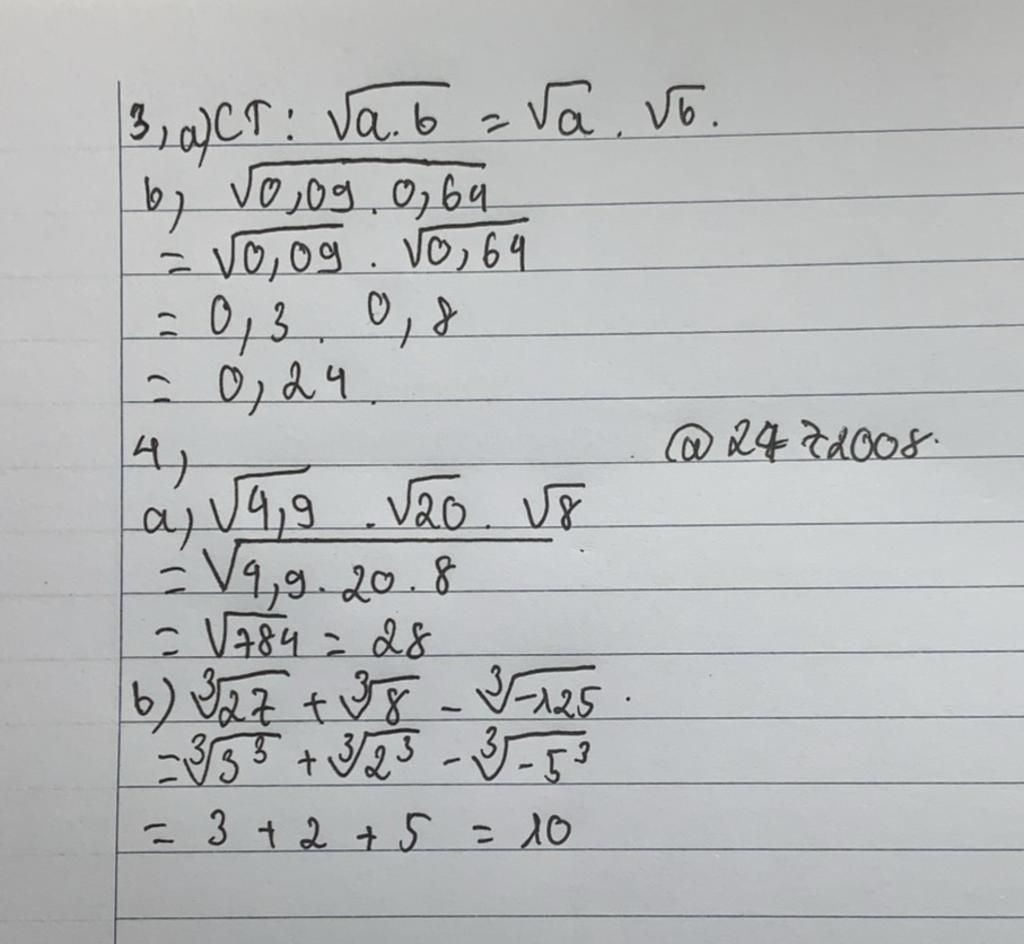 3, a) CT: √a.b = √a . √b.
b, √0,09 . 0,64
= √0,09 . √0,64
= 0,3 . 0,8
= 0,24.
4,
@2472008.
a, √4,9 . √20 . √8
= √4,9 . 20 . 8
= √784 = 28
b) ∛27 + ∛8 - ∛-125.
= ∛3³ + ∛2³ - ∛-5³
= 3 + 2 + 5 = 10